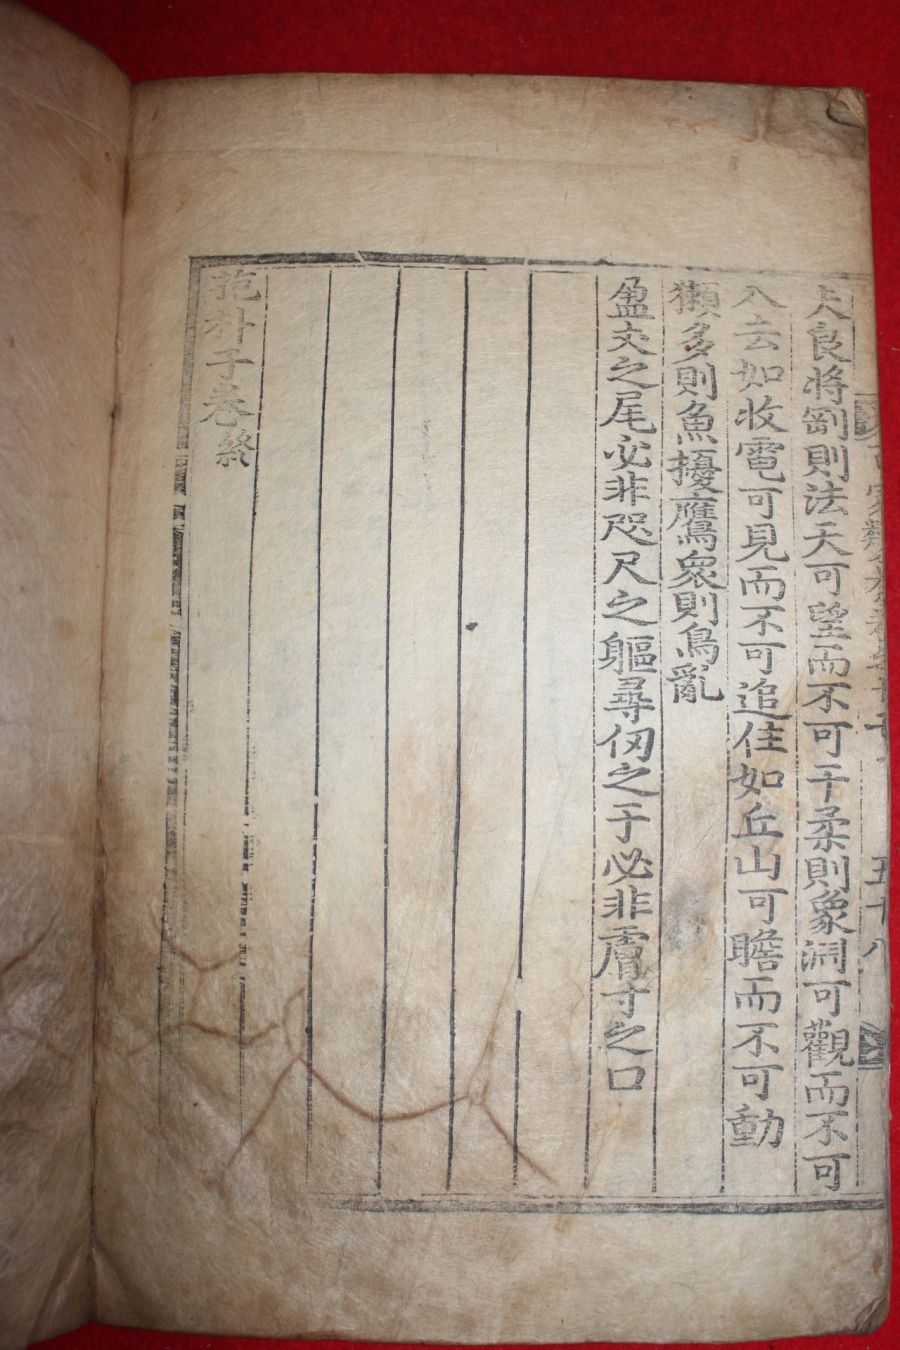 夫良將罰則法天可望而不可干柔則象淵可觀而不可
入去如收電可見而不可追住如丘山可瞻而不可動
獺多則魚擾鷹衆則鳥亂
盈丈之尾必非咫尺之軀尋仞之于必非膚寸之口
苞朴子卷終
五十八